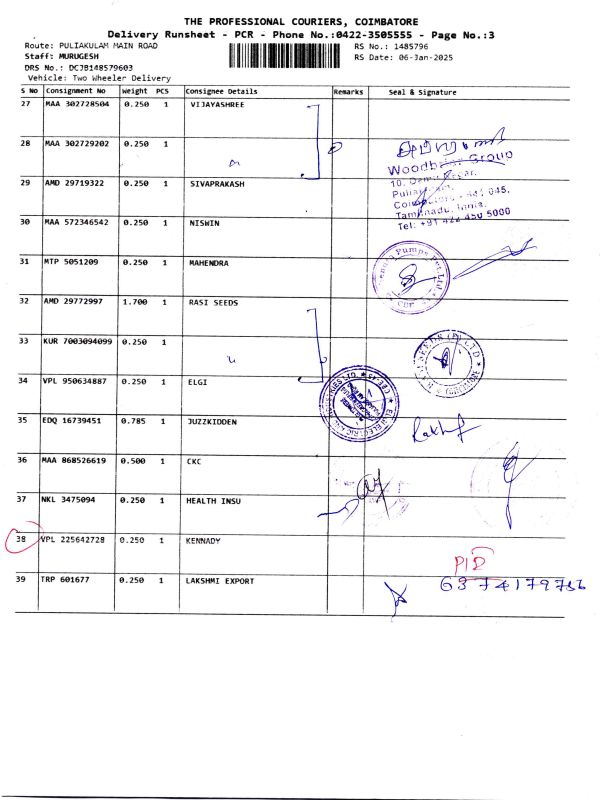 THE PROFESSIONAL COURIERS, COIMBATORE
Delivery Runsheet - PCR - Phone No.:0422-3505555 - Page No.:3
Route: PULIAKULAM MAIN ROAD
RS No.: 1485796
Staff: MURUGESH
RS Date: 06-Jan-2025
DRS No.: DCJB148579603
Vehicle: Two Wheeler Delivery
S No Consignment No Weight PCS Consignee Details Remarks Seal & Signature
27 MAA 302728504 0.250 1 VIJAYASHREE
28 MAA 302729202 0.250 1
Woodbriar Group
29 AMD 29719322 0.250 1 SIVAPRAKASH
641 045,
Tamilnadu, India.
Tel: +91 422 450 5000
30 MAA 572346542 0.250 1 NISWIN
31 MTP 5051209 0.250 1 MAHENDRA
32 AMD 29772997 1.700 1 RASI SEEDS
33 KUR 7003094099 0.250 1
34 VPL 950634887 0.250 1 ELGI
35 EDQ 16739451 0.785 1 JUZZKIDDEN
36 MAA 868526619 0.500 1 CKC
37 NKL 3475094 0.250 1 HEALTH INSU
38 VPL 225642728 0.250 1 KENNADY
39 TRP 601677 0.250 1 LAKSHMI EXPORT